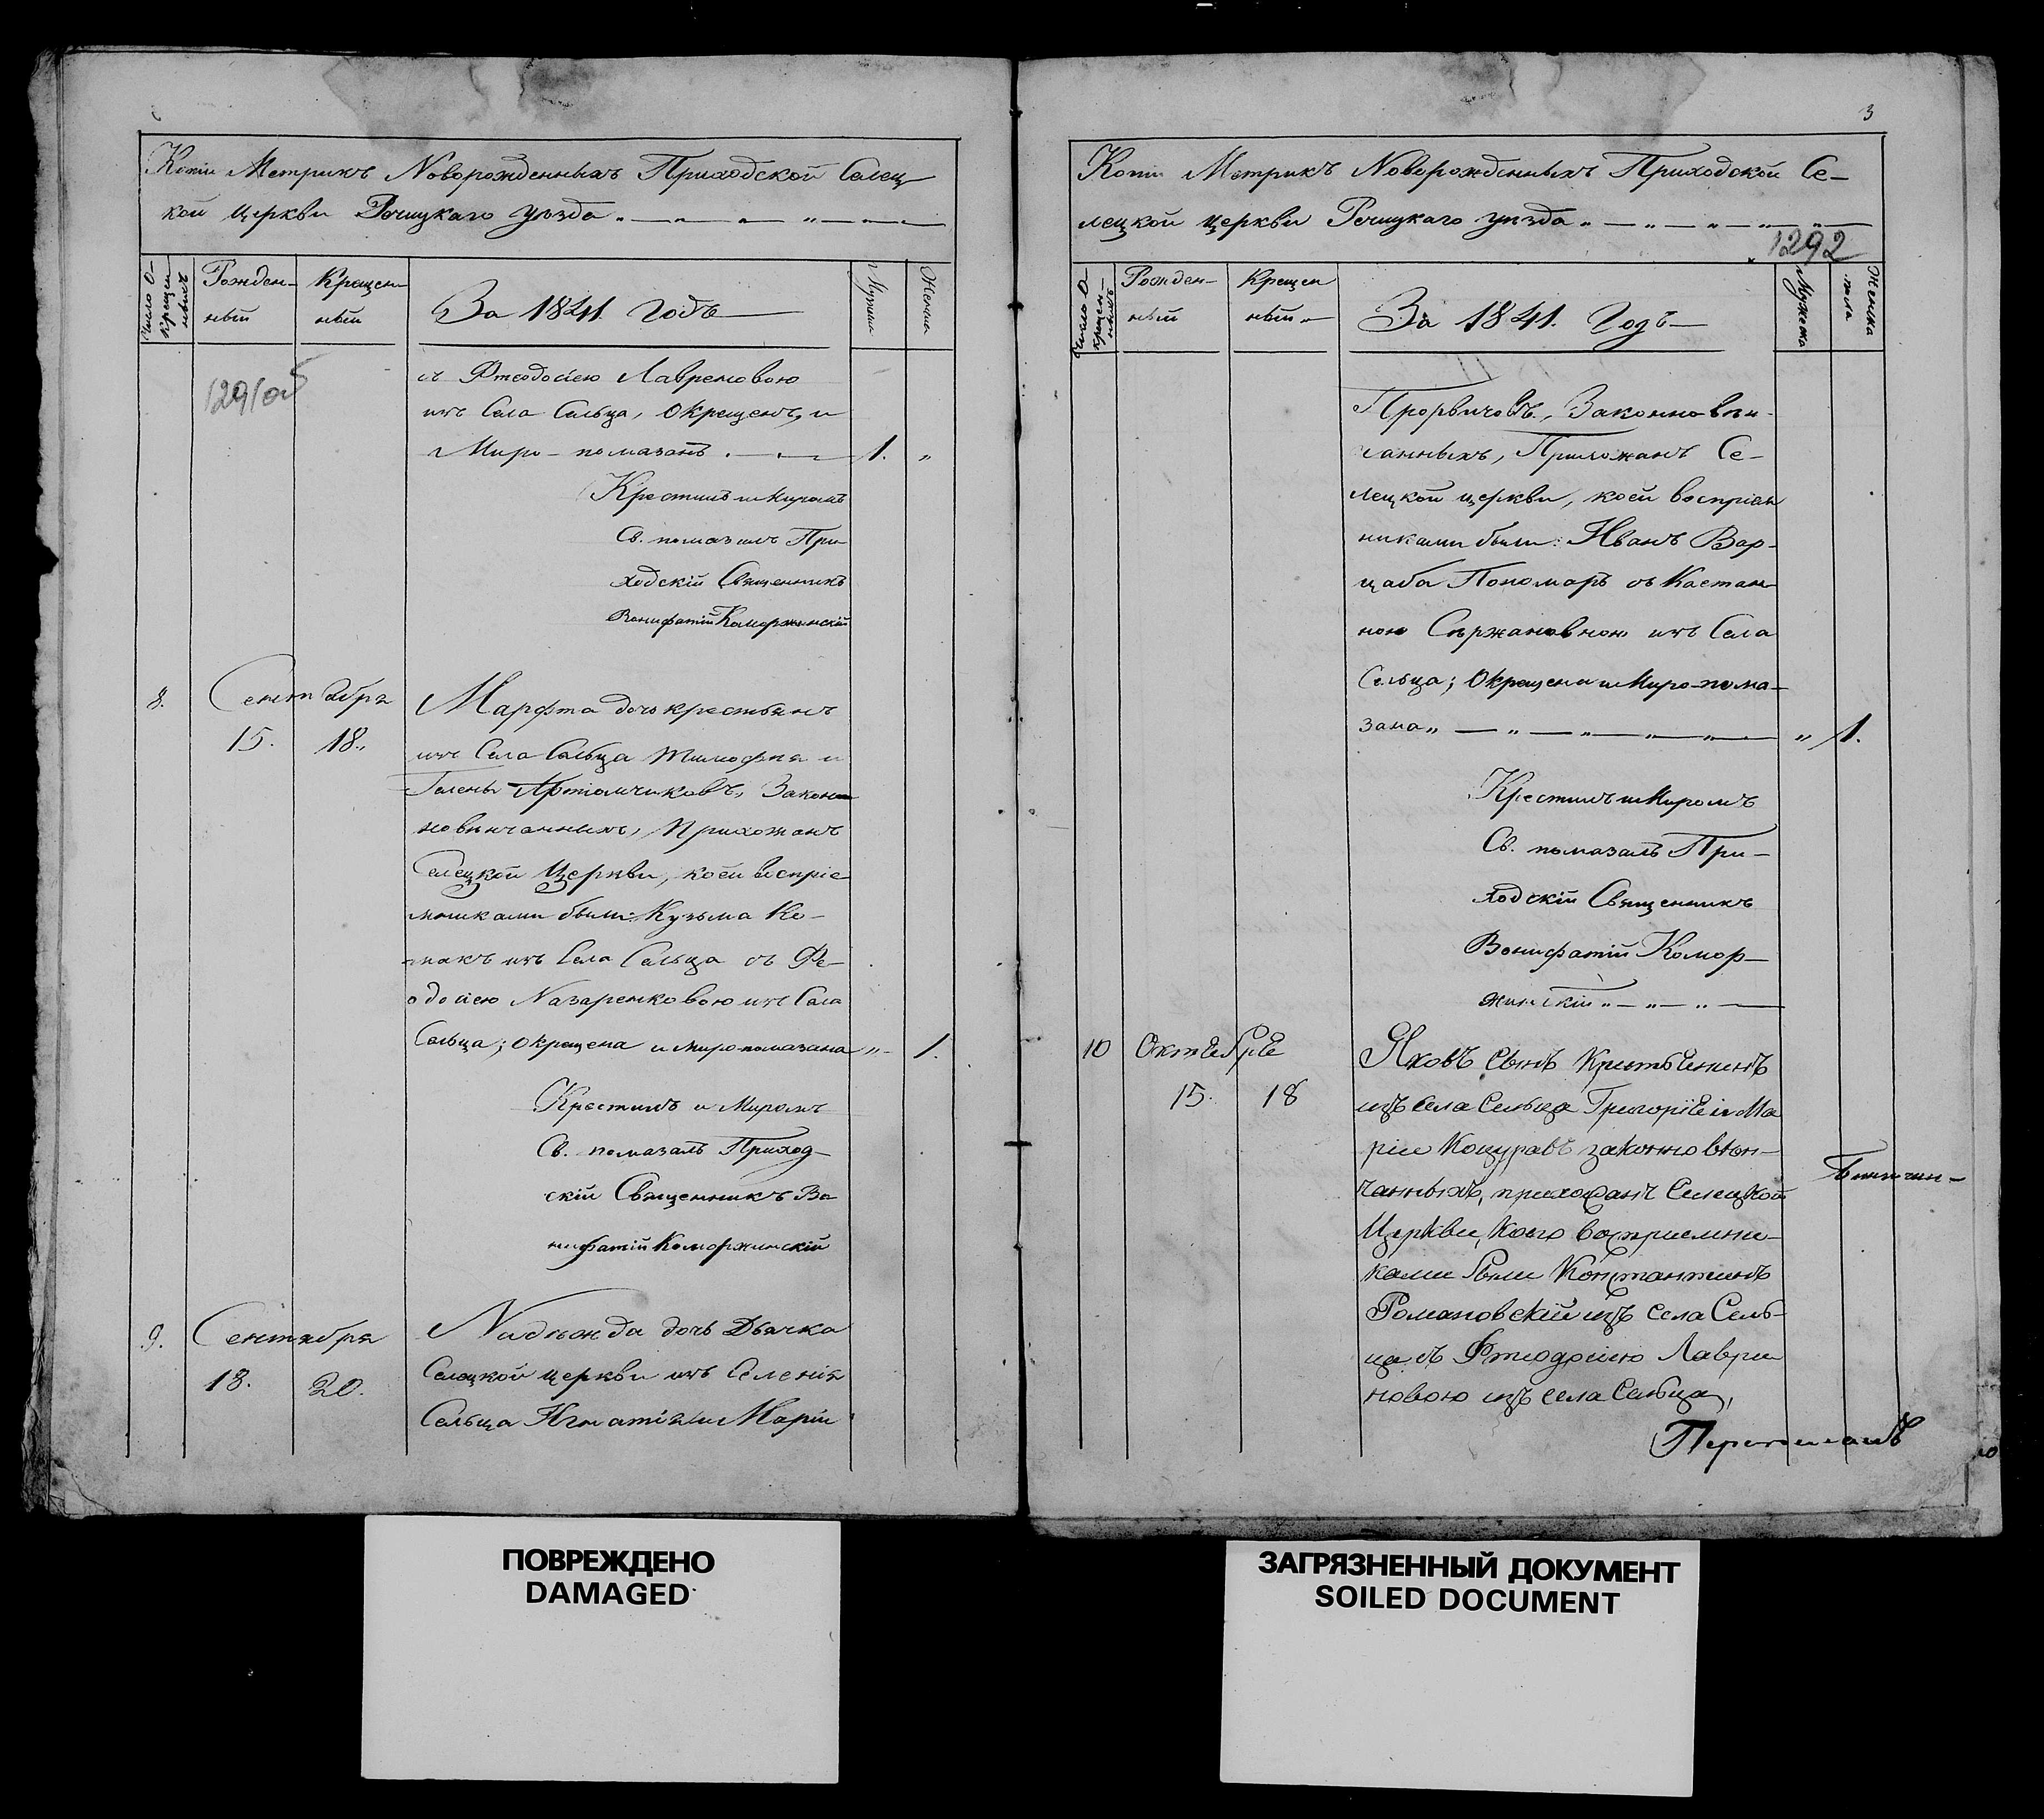 Копіи Метрикъ Новорожденныхъ Приходской Селец
кой церкви Речицкаго уѣзда
Число О-
крещен
ныхъ
Рожден-
ный
Крещен
ный
За 1841. Годъ
1291об
съ Ѳтеодосіею Лавреновою
изъ Села Сельца, Окрещенъ, и
Миро-помазанъ. 1. „
Крестилъ и Миромъ
Св. помазалъ При
ходскій Священникъ
Вонифатій Коморжинскій
8. Сентября
15. 18.
Марфта дочь крестьянъ
изъ Села Сельца Тимофея и
Гелены Артіомчиковъ, Закон
новѣнчанныхъ, Прихожанъ
Селецкой Церкви, коей воспріе
мниками были: Кузьма Ко-
изъ Села Сельца съ Фе-
одосіею Назаренковою изъ Села
Сельца; Окрещена и миропомазана „ 1.
Крестилъ и Миромъ
Св. помазалъ Приход-
скій Священникъ Во
нифатій Коморжинскій
9. Сентября
18. 20.
Надѣжда дочь Дьячка
Селецкой церкви изъ Селенія
Сельца Игнатія и Маріи
3
Копіи Метрикъ Новорожденныхъ Приходской Се-
лецкой церкви Речицкаго уѣзда
1292
Число О-
крещен-
ныхъ
Рожден-
ный
Крещен
ный
За 1841. Годъ
Мужеска
Женска
пола
Прорвичовъ, Законновѣн-
чанныхъ, Прихожанъ Се-
лецкой церкви, коей воспріем
никами были: Иванъ Вар-
цаба Пономаръ съ Кастан-
ною Сержановною изъ Села
Сельца; Окрещена и Миро-пома-
зана „ „ 1.
Крестилъ и Миромъ
Св. помазалъ При-
ходскій Священникъ
Вонифатій Комор-
жинскій
10 Октебре
15. 18
Яковъ сынъ Крестьенинъ
изъ села Сельца Григоріе и Ма
ріи Коцуравъ законно вѣн-
чанныхъ, прихожанъ Селецкой
Церкви, коего восприемни-
ками были Константинъ
Романовскій изъ села Сель-
ца съ Фтеодосіею Лаври
новою изъ села Сельца,
ПОВРЕЖДЕНО
DAMAGED
ЗАГРЯЗНЕННЫЙ ДОКУМЕНТ
SOILED DOCUMENT